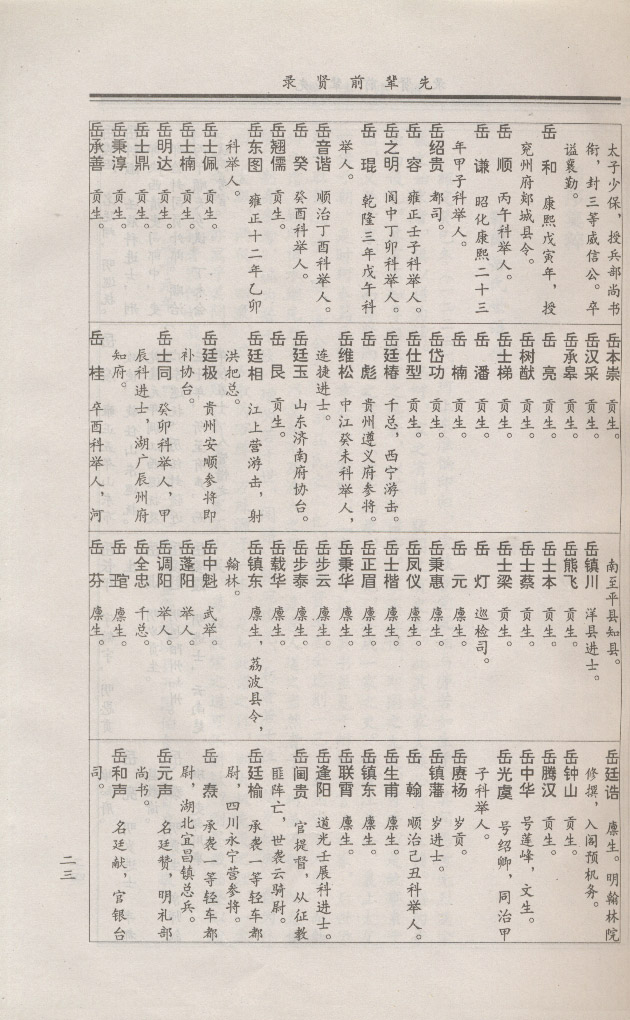 先辈前贤录
太子少保，授兵部尚书
衔，封三等威信公。卒
谥襄勤。
岳和 康熙戊寅年，授
兖州府郯城县令。
岳顺 丙午科举人。
岳谦 昭化康熙二十三
年甲子科举人。
岳绍贵 都司。
岳容 雍正壬子科举人。
岳之明 阆中丁卯科举人。
岳琨 乾隆三年戊午科
举人。
岳音谐 顺治丁酉科举人。
岳癸 癸酉科举人。
岳翘儒 贡生。
岳东图 雍正十二年乙卯
科举人。
岳士佩 贡生。
岳士楠 贡生。
岳明达 贡生。
岳士鼎 贡生。
岳秉淳 贡生。
岳承善 贡生。
岳本崇 贡生。
岳汉采 贡生。
岳承皋 贡生。
岳亮 贡生。
岳树猷 贡生。
岳士梯 贡生。
岳潘 贡生。
岳楠 贡生。
岳岱功 贡生。
岳仕型 贡生。
岳廷椿 千总，西宁游击。
岳彪 贵州遵义府参将。
岳维松 中江癸未科举人，
连捷进士。
岳廷玉 山东济南府协台。
岳艮 贡生。
岳廷相 江上营游击，射
洪把总。
岳廷极 贵州安顺参将即
补协台。
岳士同 癸卯科举人，甲
辰科进士，湖广辰州府
知府。
岳桂 辛酉科举人，河
南至平县知县。
岳镇川 洋县进士。
岳熊飞 贡生。
岳士本 贡生。
岳士蔡 贡生。
岳士梁 贡生。
岳灯 巡检司。
岳元 廪生。
岳秉惠 廪生。
岳凤仪 廪生。
岳士楷 廪生。
岳正眉 廪生。
岳秉华 廪生。
岳步云 廪生。
岳步泰 廪生。
岳载华 廪生。
岳镇东 廪生，荔波县令，
翰林。
岳中魁 武举。
岳蓬阳 举人。
岳调阳 举人。
岳全忠 千总。
岳琯 廪生。
岳芬 廪生。
岳廷诰 廪生。明翰林院
修撰，入阁预机务。
岳钟山 贡生。
岳腾汉 贡生。
岳中华 号莲峰，文生。
岳光虞 号绍卿，同治甲
子科举人。
岳赓杨 岁贡。
岳镇藩 岁进士。
岳翰 顺治己丑科举人。
岳生甫 廪生。
岳镇东 廪生。
岳联霄 廪生。
岳逢阳 道光壬展科进士。
岳阃贵 官提督，从征教
匪阵亡，世袭云骑尉。
岳廷榆 承袭一等轻车都
尉，四川永宁营参将。
岳焘 承袭一等轻车都
尉，湖北宜昌镇总兵。
岳元声 名廷赞，明礼部
尚书。
岳和声 名廷献，官银台
司。
二三